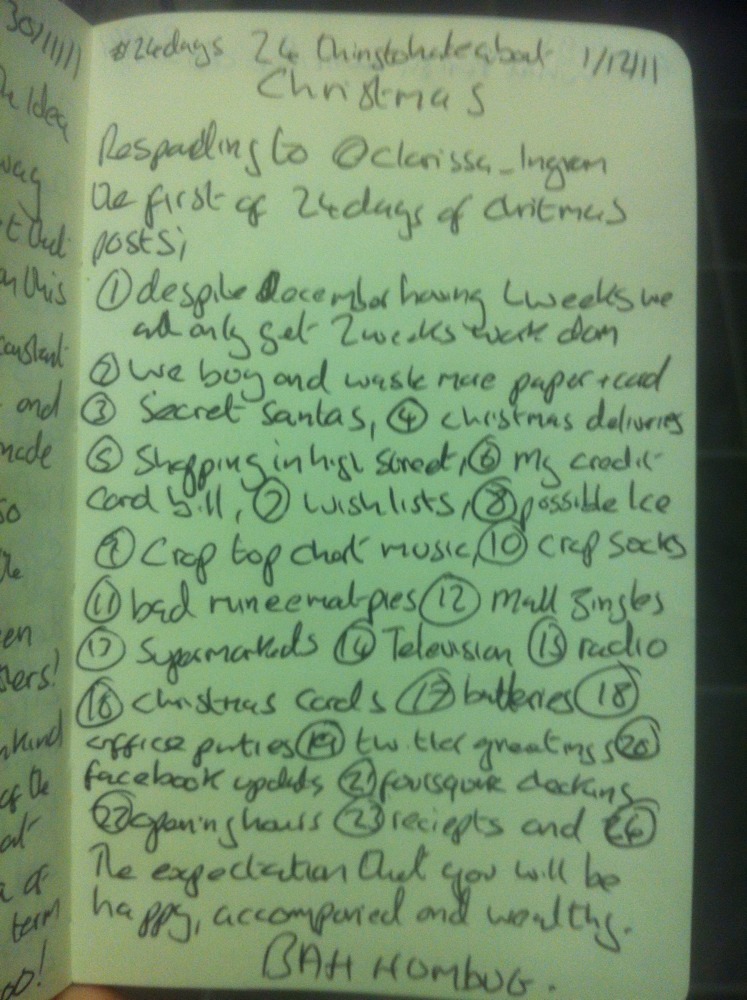 30/11/11
Idea
way
t that
on this
constant
and
made
so
the
een
hers!
nkind
of the
at
a or
term
oo!
#24days 24 thingstohateabout 1/12/11
Christmas
Responding to @clarissa_Ingram
the first of 24days of chritmas
posts;
① despite December having 4weeks we
all only get 2weeks work done
② we buy and waste more paper + card
③ Secret Santas, ④ christmas deliveries
⑤ Shopping in high street, ⑥ my credit
card bill, ⑦ wishlists, ⑧ possible Ice
⑨ Crap top chart music, ⑩ crap socks
⑪ bad pies ⑫ Mall Jingles
⑬ Supermarkets ⑭ Television ⑮ radio
⑯ christmas cards ⑰ batteries ⑱
office parties ⑲ twitter greetings ⑳
facebook updates ㉑ foursquare
㉒ opening hours ㉓ reciepts and ㉔
The expectation that you will be
happy, accompanied and wealthy.
BAH HUMBUG.